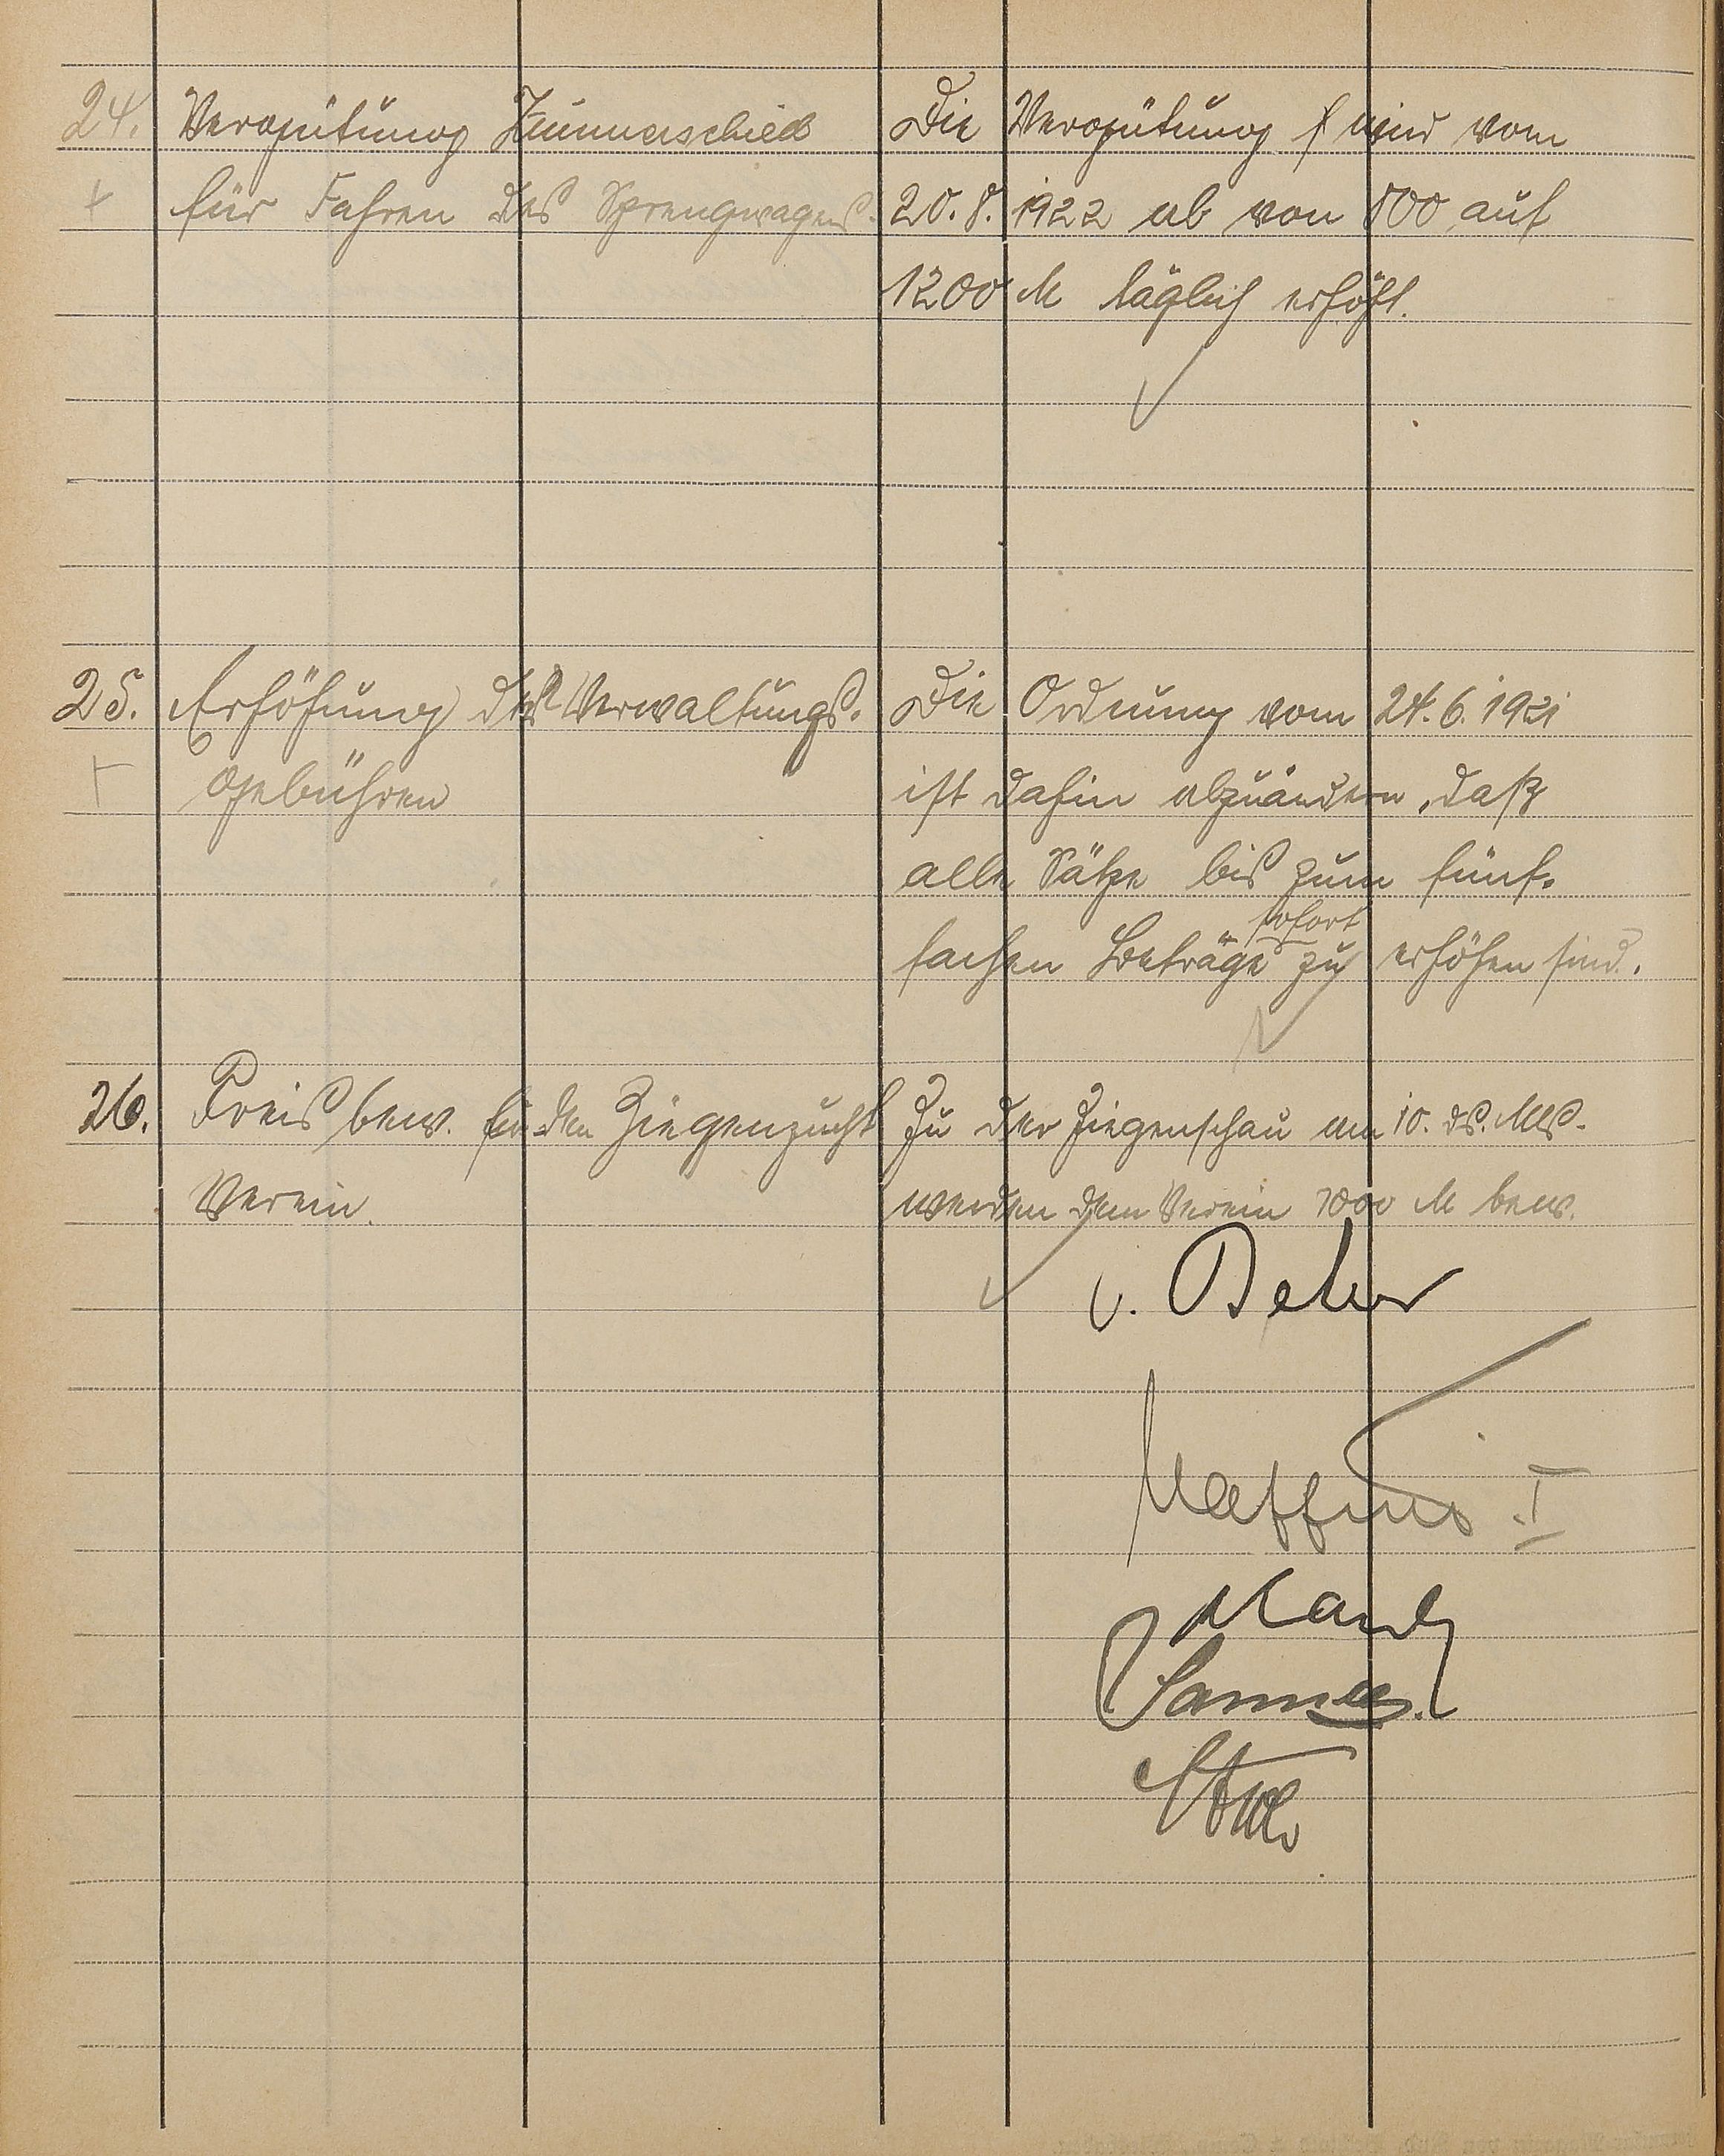 24. Vergütung Zunnerschied
für Fahren des Sprengwagens.
Die Vergütung wird vom
20. 8. 1922 ab von 800 auf
1200 M täglich erhöht.
25. Erhöhung der Verwaltungs-
gebühren
Die Ordnung vom 24. 6. 1921
ist dahin abzuändern, daß
alle Sätze bis zum fünf-
fachen Beträge sofort zu erhöhen sind.
26. Preis bew. für den Ziegenzucht
Verein.
Zu der Ziegenschau am 10. ds. Mts.
werden dem Verein 1000 M bew.
v. Beker
I